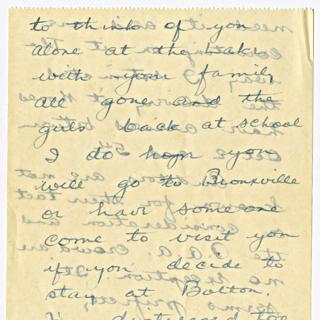 to think of you
alone at the lake
with your family
all gone and the
girls back at school
I do hope you
will go to Bronxville
or have someone
come to visit you
if you decide to
stay at Bolton.
I'm distressed too